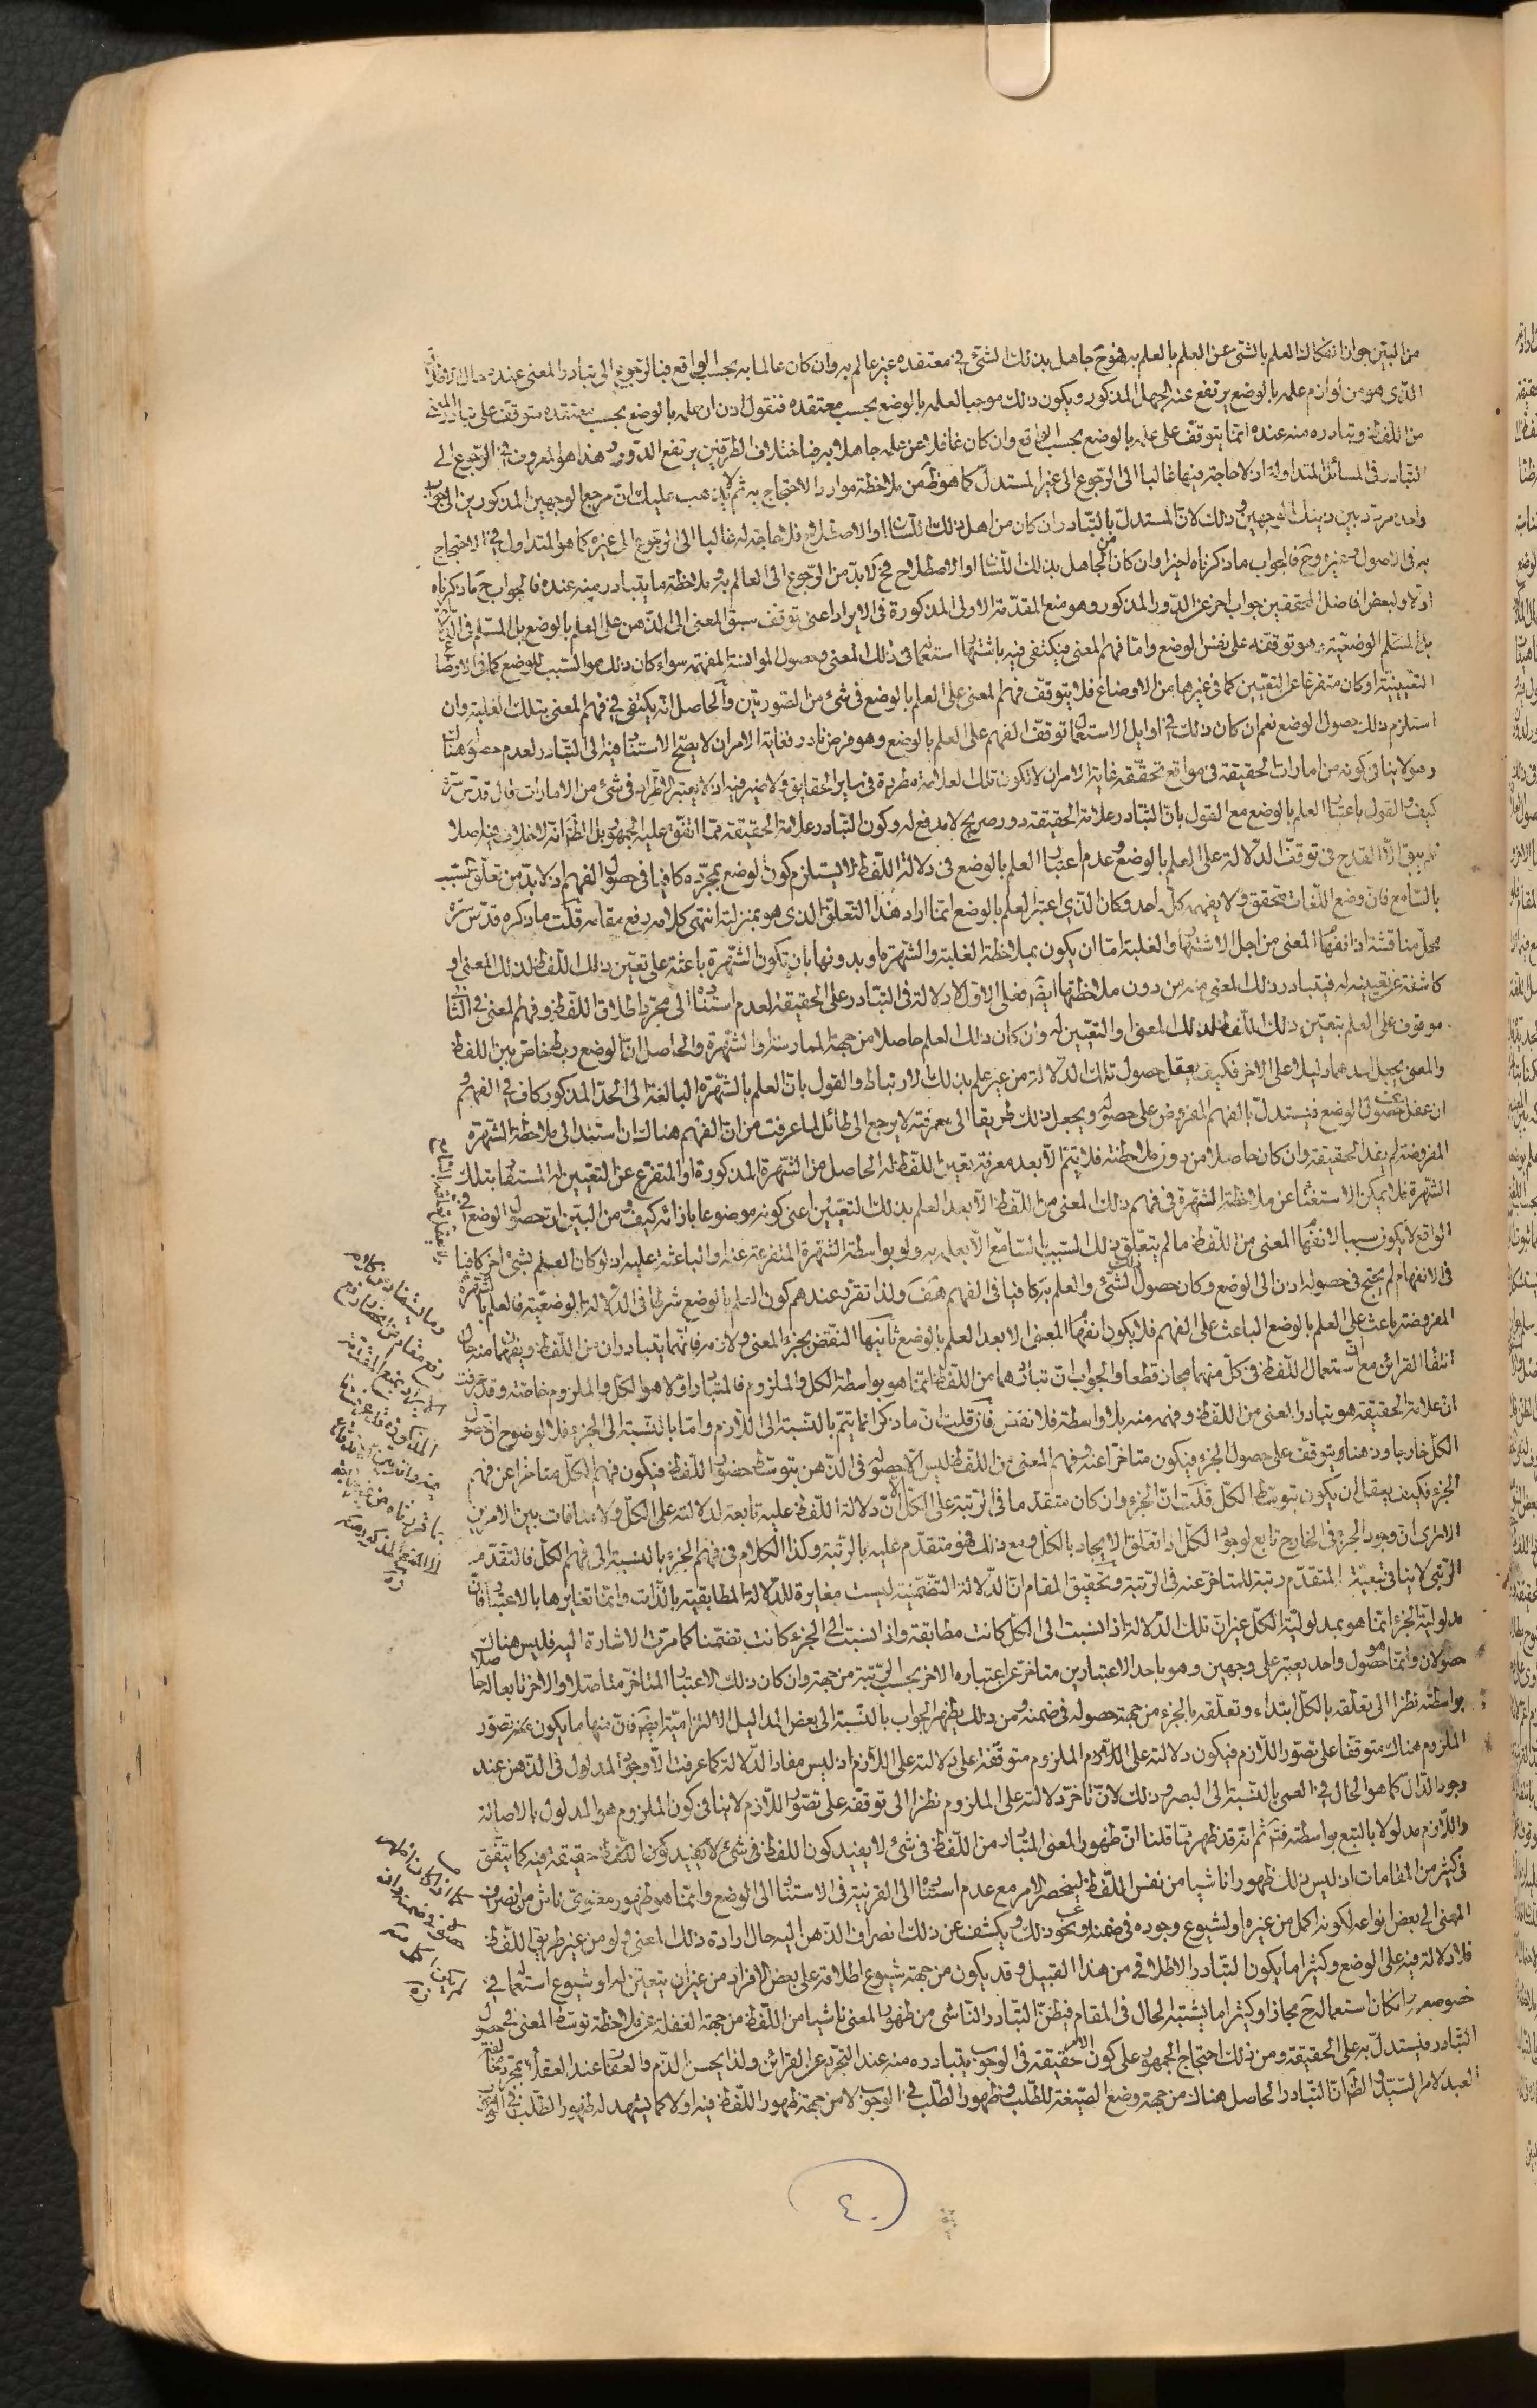 من البين جواز انفكاك العلم بالشئ عن العلم بالعلم به فهو ح جاهل بذلك الشئ في معتقده غير عالم به وان كان عالما به بحسب الواقع فبالرجوع الى تبادر المعنى عنده حال الاطلاق
الذى هو من لوازم علمه بالوضع يرتفع عنه الجهل المذكور ويكون ذلك موجبا لعلمه بالوضع بحسب معتقده فنقول اذن ان علمه بالوضع بحسب معتقده متوقف على تبادر المعنى
من اللفظ وتبادره منه عنده انما يتوقف على علمه بالوضع بحسب الواقع وان كان غافلا عن علمه جاهلا به فباختلاف الطرفين يرتفع الدور وهذا هو المعروف في الرجوع الى
التبادر في المسائل المتداولة اذ لا حاجة فيها غالبا الى الرجوع الى غير المستدل كما هو ظ من ملاحظة موارد الاحتجاج به ثم لا يذهب عليك ان مرجع الوجهين المذكورين الى جواب
واحد مردد بين ذينك الوجهين وذلك لان المستدل بالتبادر ان كان من اهل ذلك اللسان او الاصطلاح فلا حاجة له غالبا الى الرجوع الى غيره كما هو المتداول في الاحتجاج
به في الاصول وغيره وح فالجواب ما ذكرناه اخيرا وان كان من الجاهل بذلك اللسان او الاصطلاح فح لا بد من الرجوع الى العالم به وملاحظة ما يتبادر منه عنده فالجواب ح ما ذكرناه
اولا ولبعض افاضل المحققين جواب اخر عن الدور المذكور وهو منع المقدمة الاولى المذكورة في الايراد اعنى توقف سبق المعنى الى الذهن على العلم بالوضع بل المسلم في الدلالة
الوضعية هو توقفه على نفس الوضع واما فهم المعنى فيكتفى فيه باشتهار استعماله في ذلك المعنى وحصول الموانسة المفهمة سواء كان ذلك هو السبب للوضع كما في الاوضاع
التعينية او كان متفرعا عن التعيين كما في غيرها من الاوضاع فلا يتوقف فهم المعنى على العلم بالوضع في شئ من الصورتين والحاصل انه يكتفى في فهم المعنى بتلك الغلبة وان
استلزم ذلك حصول الوضع نعم ان كان ذلك في اوايل الاستعمال توقف الفهم على العلم بالوضع وهو فرض نادر فغاية الامر ان لا يصح الاستناد فيه الى التبادر لعدم حصوله هناك
وهو لا ينافي كونه من امارات الحقيقة في مواقع تحققه غاية الامر ان لا تكون تلك العلامة مطردة في ساير الحقايق ولا ضير فيه اذ لا يعتبر الاطراد في شئ من الامارات قال قدس سره
كيف والقول باعتبار العلم بالوضع مع القول بان التبادر علامة الحقيقة دور صريح لا مدفع له وكون التبادر علامة الحقيقة مما اتفق عليه الجمهور بل الظ انه لا خلاف فيه اصلا
فلم يبق الا القدح في توقف الدلالة على العلم بالوضع وعدم اعتبار العلم بالوضع في دلالة اللفظ لا يستلزم كون الوضع بمجرده كافيا في حصول الفهم اذ لا بد من تعلق تسبب
بالسامع فان وضع اللغات متحقق ولا يفهمه كل احد وكان الذى اعتبر العلم بالوضع انما اراد هذا التعلق الذى هو بمنزلته انتهى كلامه رفع مقامه قلت ما ذكره قدس سره
محل مناقشة اذ انفهام المعنى من اجل الاشتهار والغلبة اما ان يكون بملاحظة الغلبة والشهرة او بدونها بان تكون الشهرة باعثة على تعين ذلك اللفظ لذلك المعنى او
كاشفة عن تعيينه له فيتبادر ذلك المعنى منه من دون ملاحظتها ايضا فعلى الاول لا دلالة في التبادر على الحقيقة لعدم استناده الى مجرد اطلاق اللفظ وفهم المعنى في الثاني
موقوف على العلم بتعين ذلك اللفظ لذلك المعنى او التعيين له وان كان ذلك العلم حاصلا من جهة الممارسة والشهرة والحاصل ان الوضع ربط خاص بين اللفظ
والمعنى يجعل احدهما دليلا على الاخر فكيف يعقل حصول تلك الدلالة من غير علم بذلك الارتباط والقول بان العلم بالشهرة البالغة الى الحد المذكور كاف في الفهم و
ان غفل عن حصول الوضع فيستدل بالفهم المفروض على حصوله ويجعل ذلك طريقا الى معرفته لا يرجع الى طائل لما عرفت من ان الفهم هناك ان استند الى ملاحظة الشهرة
المفروضة لم يفد الحقيقة وان كان حاصلا من دون ملاحظته فلا يتم الا بعد معرفة تعين اللفظ له الحاصل من الشهرة المذكورة او المتفرع عن التعيين له المستفاد بتلك
الشهرة فلا يمكن الاستغناء عن ملاحظة الشهرة في فهم ذلك المعنى من اللفظ الا بعد العلم بذلك التعين اعنى كونه موضوعا بازائه كيف ومن البين ان حصول الوضع في
الواقع لا يكون سببا لانفهام المعنى من اللفظ ما لم يتعلق ذلك السبب بالسامع الا بعلمه به ولو بواسطة الشهرة المتفرعة عنه او الباعثة عليه اذ لو كان العلم بشئ اخر كافيا
في الانفهام لم يحتج في حصوله اذن الى الوضع وكان حصول ذلك الشئ والعلم به كافيا في الفهم هف ولذا تقرر عندهم كون العلم بالوضع شرطا في الدلالة الوضعية فالعلم بالشهرة
المفروضة باعث على العلم بالوضع الباعث على الفهم فلا يكون انفهام المعنى الا بعد العلم بالوضع ثانيها النقض بجزء المعنى ولازمه فانهما يتبادران من اللفظ ويفهمان منه حال
انتفاء القرائن مع ان استعمال اللفظ في كل منهما مجاز قطعا والجواب ان تبادرهما من اللفظ انما هو بواسطة الكل والملزوم فالمتبادر اولا هو الكل والملزوم خاصة وقد عرفت
ان علامة الحقيقة هو تبادر المعنى من اللفظ وفهمه منه بلا واسطة فلا نقض فان قلت ان ما ذكر انما يتم بالنسبة الى اللازم واما بالنسبة الى الجزء فلا لوضوح ان حصول
الكل خارجا وذهنا يتوقف على حصول الجزء فيكون متاخرا عنه وفهم المعنى من اللفظ ليس الا حصوله في الذهن بتوسط حضور اللفظ فيكون فهم الكل متاخرا عن فهم
الجزء فكيف يعقل ان يكون بتوسط الكل قلت ان الجزء وان كان متقدما في الرتبة على الكل الا ان دلالة اللفظ عليه تابعة لدلالته على الكل ولا منافات بين الامرين
الا ترى ان وجود الجزء في الخارج تابع لوجود الكل اذا تعلق الايجاد بالكل ومع ذلك فهو متقدم عليه بالرتبة وكذا الكلام في فهم الجزء بالنسبة الى فهم الكل فالتقدم
الرتبى لا ينافى تبعية المتقدم رتبة للمتاخر عنه في الرتبة وتحقيق المقام ان الدلالة التضمنية ليست مغايرة للدلالة المطابقية بالذات وانما تغايرها بالاعتبار فان
مدلولية الجزء انما هو بمدلولية الكل غير ان تلك الدلالة اذا نسبت الى الكل كانت مطابقة واذا نسبت الى الجزء كانت تضمنا كما مرت الاشارة اليه فليس هناك
حصولان وانما هو حصول واحد يعتبر على وجهين وهو باحد الاعتبارين متاخر عن اعتباره الاخر بحسب الرتبة من جهة وان كان ذلك الاعتبار المتاخر متاصلا والاخر تابعا له حاصلا
بواسطته نظرا الى تعلقه بالكل ابتداء وتعلقه بالجزء من جهة حصوله في ضمنه ومن ذلك يظهر الجواب بالنسبة الى بعض المداليل الالتزامية ايضا فان منها ما يكون تصور
الملزوم هناك متوقفا على تصور اللازم فيكون دلالته على الملزوم متوقفة على دلالته على اللازم اذ ليس مفاد الدلالة كما عرفت الا وجود المدلول في الذهن عند
وجود الدال كما هو الحال في العمى بالنسبة الى البصر وذلك لان تاخر دلالته على الملزوم نظرا الى توقفه على تصور اللازم لا ينافي كون الملزوم هو المدلول بالاصالة
واللازم مدلولا بالتبع بواسطته فتم ثم انه قد ظهر بما قلنا ان ظهور المعنى المتبادر من اللفظ في شئ لا يفيد كون اللفظ حقيقة فيه كما يتفق
في كثير من المقامات اذ ليس ذلك ظهورا ناشيا من نفس اللفظ لينحصر الامر مع عدم استناده الى القرينة في الاستناد الى الوضع وانما هو ظهور معنوى ناش من انصراف
المعنى الى بعض انواعه لكونه اكمل من غيره او لشيوع وجوده في ضمنه ونحو ذلك ويكشف عن ذلك انصراف الذهن اليه حال ارادة ذلك المعنى ولو من غير طريق اللفظ
فلا دلالة فيه على الوضع وكثيرا ما يكون التبادر الاطلاقى من هذا القبيل وقد يكون من جهة شيوع اطلاقه على بعض الافراد من غير ان يتعين له او شيوع استعماله في
خصوصه وان كان استعماله ح مجازا وكثيرا ما يشتبه الحال في المقام فيظن التبادر الناشى من ظهور المعنى ناشيا من اللفظ من جهة الغفلة عن ملاحظة توسط المعنى في حصول
التبادر فيستدل به على الحقيقة ومن ذلك احتجاج الجمهور على كون الامر حقيقة في الوجوب بتبادره منه عند التجرد عن القرائن ولذا يحسن الذم والعقاب عند العقلاء بمجرد مخالفة
العبد لامر السيد والظ ان التبادر الحاصل هناك من جهة وضع الصيغة للطلب وظهور الطلب في الوجوب لا من جهة ظهور اللفظ فيه اولا كما يشهد له ظهور الطلب في الوجوب
٤٠